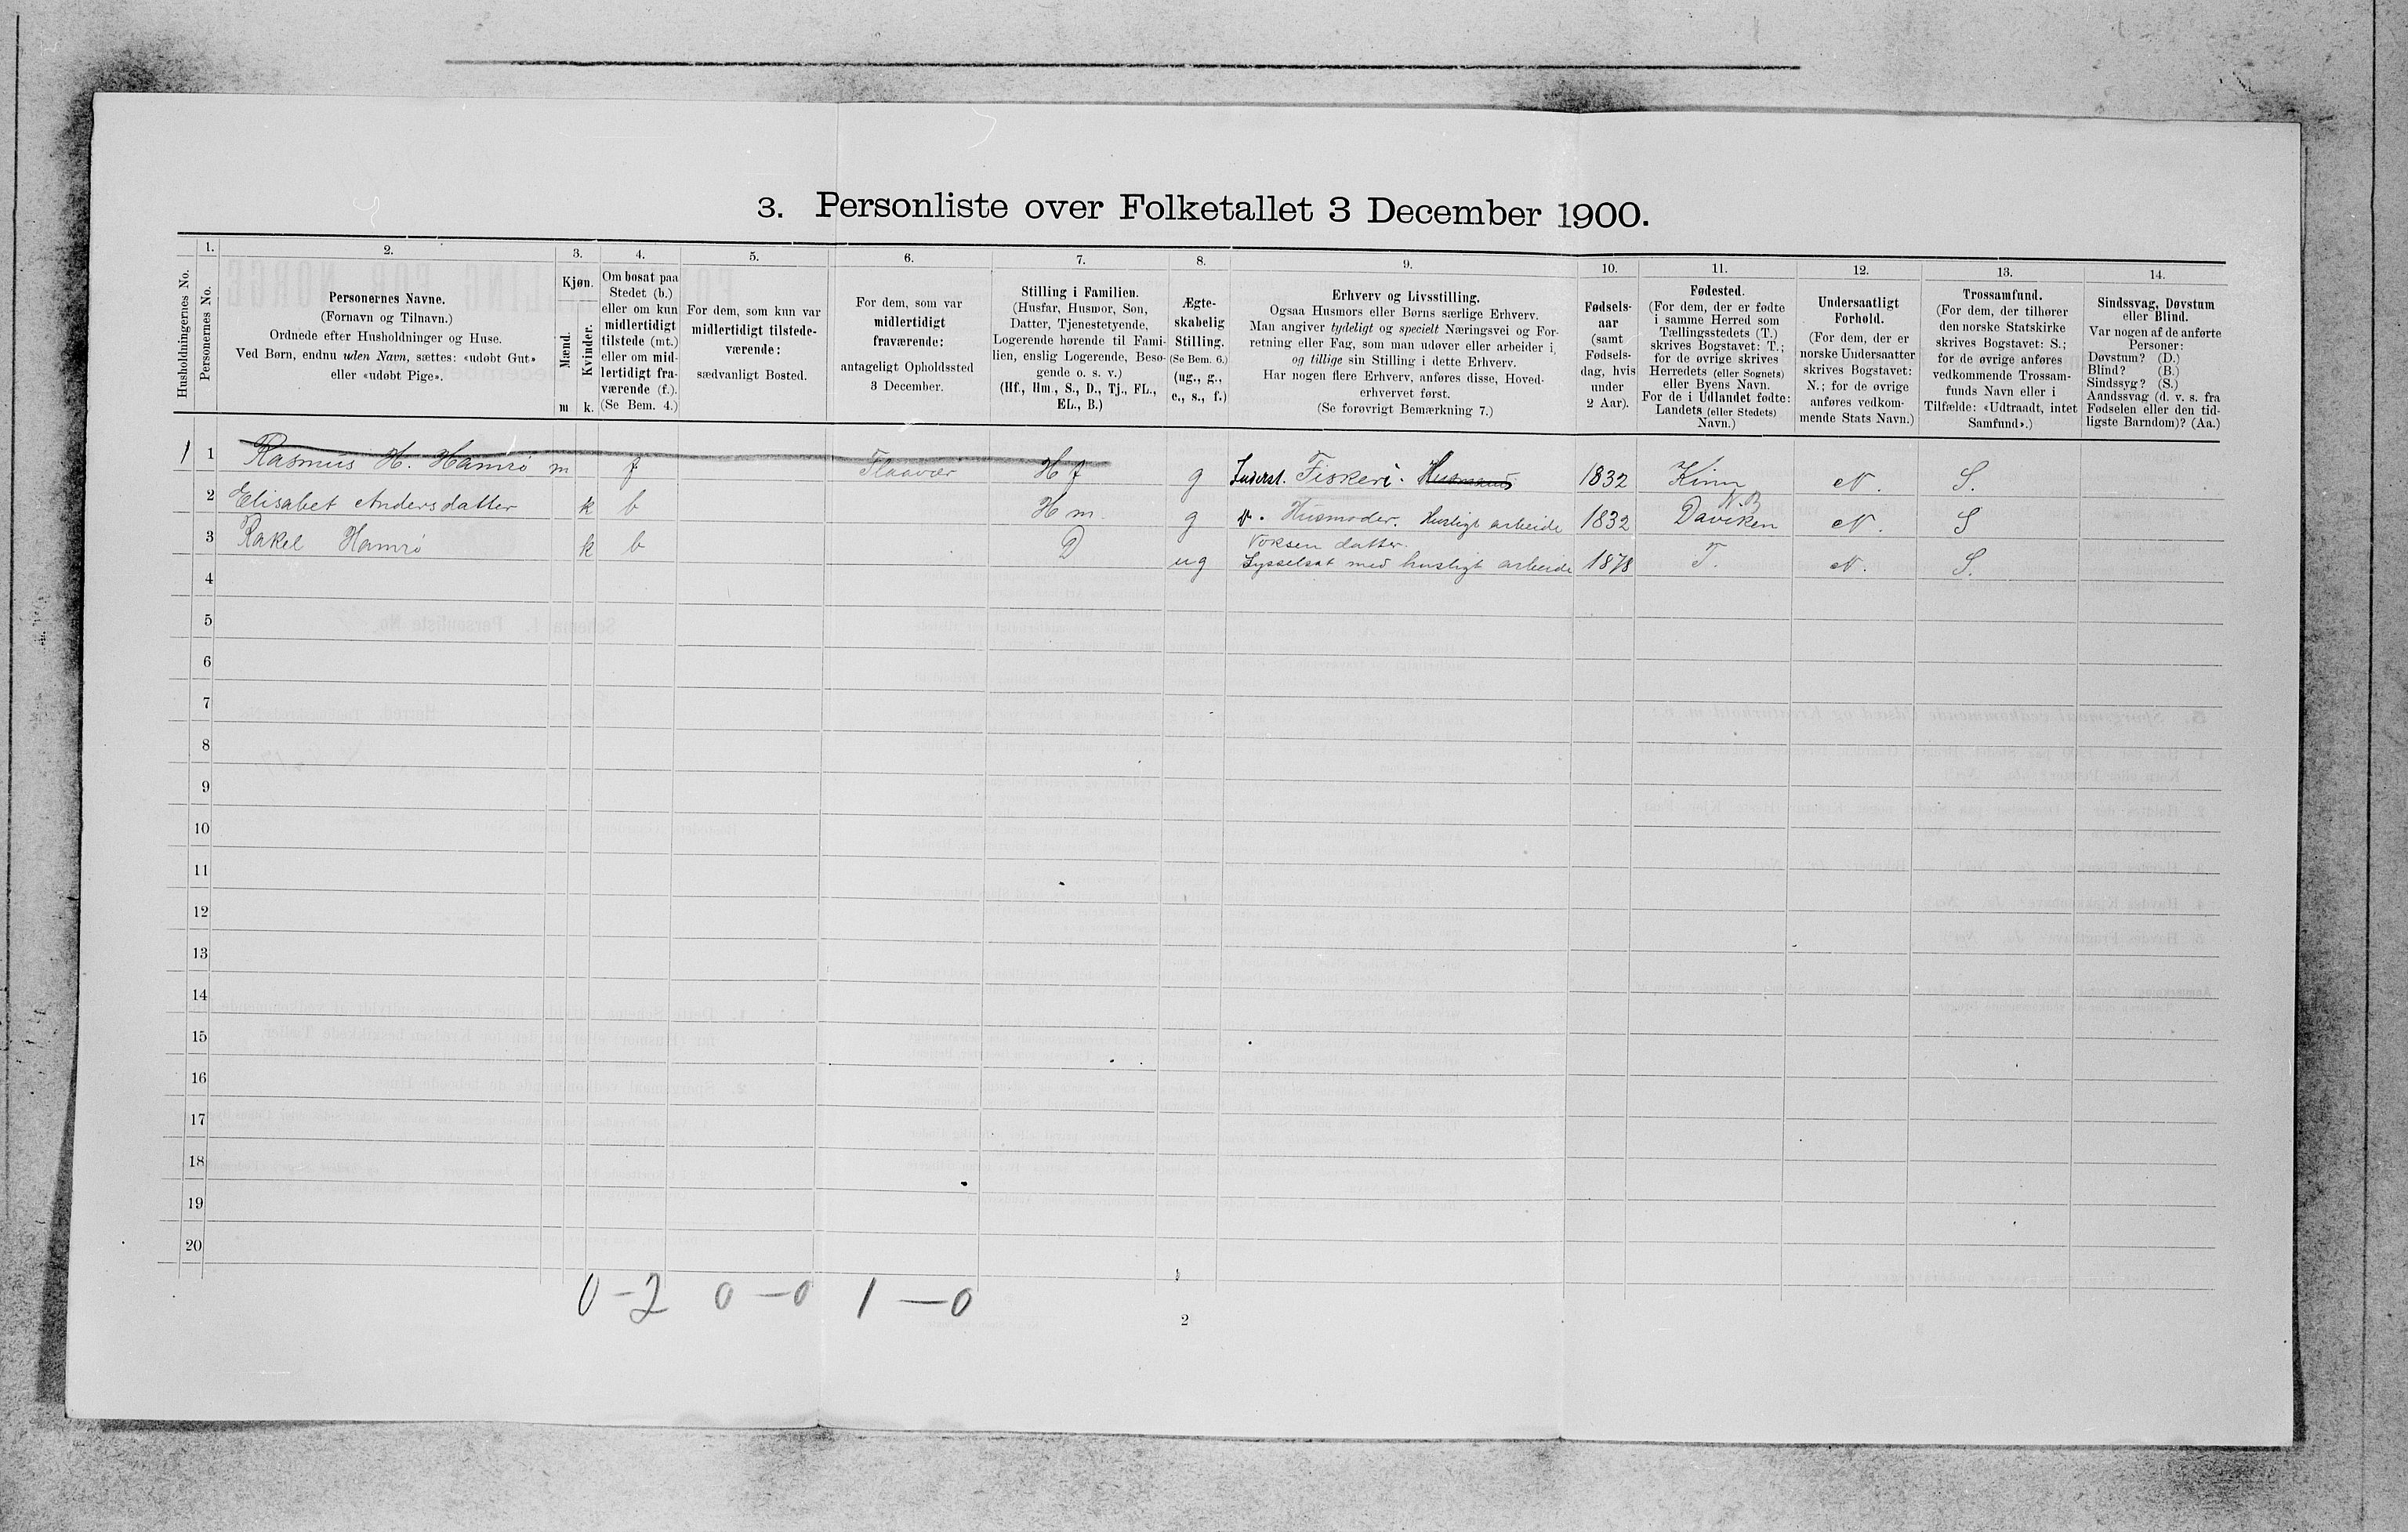 3. Personliste over Folketallet 3 December 1900.
1. 2. 3. 4. 5. 6. 7. 8. 9. 10. 11. 12. 13. 14.
Husholdningernes No.
Personernes No.
Personernes Navne.
(Fornavn og Tilnavn.)
Ordnede efter Husholdninger og Huse.
Ved Børn, endnu uden Navn, sættes: «udøbt Gut»
eller «udøbt Pige».
Kjøn.
Mænd.
Kvinder.
m k.
Om bosat paa
Stedet (b.)
eller om kun
midlertidigt
tilstede (mt.)
eller om mid-
lertidigt fra-
værende (f.).
(Se Bem. 4.)
For dem, som kun var
midlertidigt tilstede-
værende:
sædvanligt Bosted.
For dem, som var
midlertidigt
fraværende:
antageligt Opholdssted
3 December.
Stilling i Familien.
(Husfar, Husmor, Søn,
Datter, Tjenestetyende,
Logerende hørende til Fami-
lien, enslig Logerende, Besø-
gende o. s. v.)
(Hf., Hm., S., D., Tj., FL.,
EL., B.)
Ægte-
skabelig
Stilling.
(Se Bem. 6.)
(ug., g.,
e., s., f.)
Erhverv og Livsstilling.
Ogsaa Husmors eller Børns særlige Erhverv.
Man angiver tydeligt og specielt Næringsvei og For-
retning eller Fag, som man udøver eller arbeider i,
og tillige sin Stilling i dette Erhverv.
Har nogen flere Erhverv, anføres disse, Hoved-
erhvervet først.
(Se forøvrigt Bemærkning 7.)
Fødsels-
aar
(samt
Fødsels-
dag, hvis
under
2 Aar).
Fødested.
(For dem, der er fødte
i samme Herred som
Tællingsstedets (T.)
skrives Bogstavet: T.;
for de øvrige skrives
Herredets (eller Sognets)
eller Byens Navn.
For de i Udlandet fødte:
Landets (eller Stedets)
Navn.)
Undersaatligt
Forhold.
(For dem, der er
norske Undersaatter
skrives Bogstavet:
N.; for de øvrige
anføres vedkom-
mende Stats Navn.)
Trossamfund.
(For dem, der tilhører
den norske Statskirke
skrives Bogstavet: S.;
for de øvrige anføres
vedkommende Trossam-
funds Navn eller i
Tilfælde: «Udtraadt, intet
Samfund».)
Sindssvag, Døvstum
eller Blind.
Var nogen af de anførte
Personer:
Døvstum? (D.)
Blind? (B.)
Sindssyg? (S.)
Aandssvag (d. v. s. fra
Fødselen eller den tid-
ligste Barndom)? (Aa.)
1 1 Rasmus H. Hamrø m f Flaavær Hf g Inderst. Fiskeri. Husmand 1832 Kinn N. S.
2 Elisabet Andersdatter k b Hm. g Husmoder. Husligt arbeide 1832 Daviken N.B N. S
3 Rakel Hamrø k b D ug Voksen datter.
Sysselsat med husligt arbeide 1878 T. N. S.
4
5
6
7
8
9
10
11
12
13
14
15
16
17
18
19
20
0-2 0-0 1-0
2